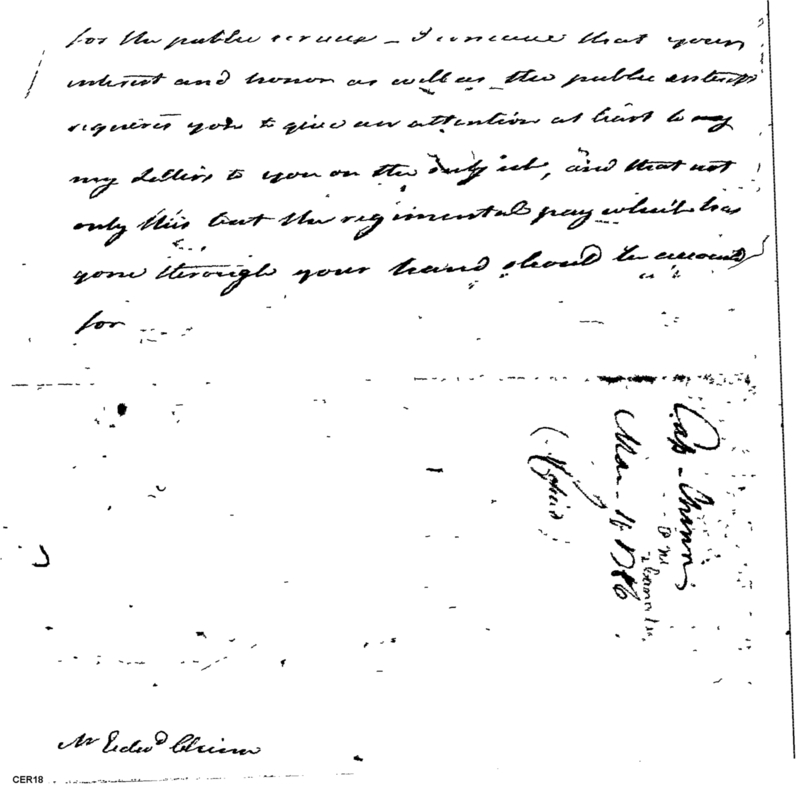 for the public service – I conceive that your
interest and honor as well as the public interest
requires you to give an attention at least to my
my letters to you on the subject, and that not
only this but the regimental pay which has
gone through your hand should be accounted
for
Cap. Chinn
Mar. 11. 1786
(Copied)
Mr Edwd Chinn
CER18